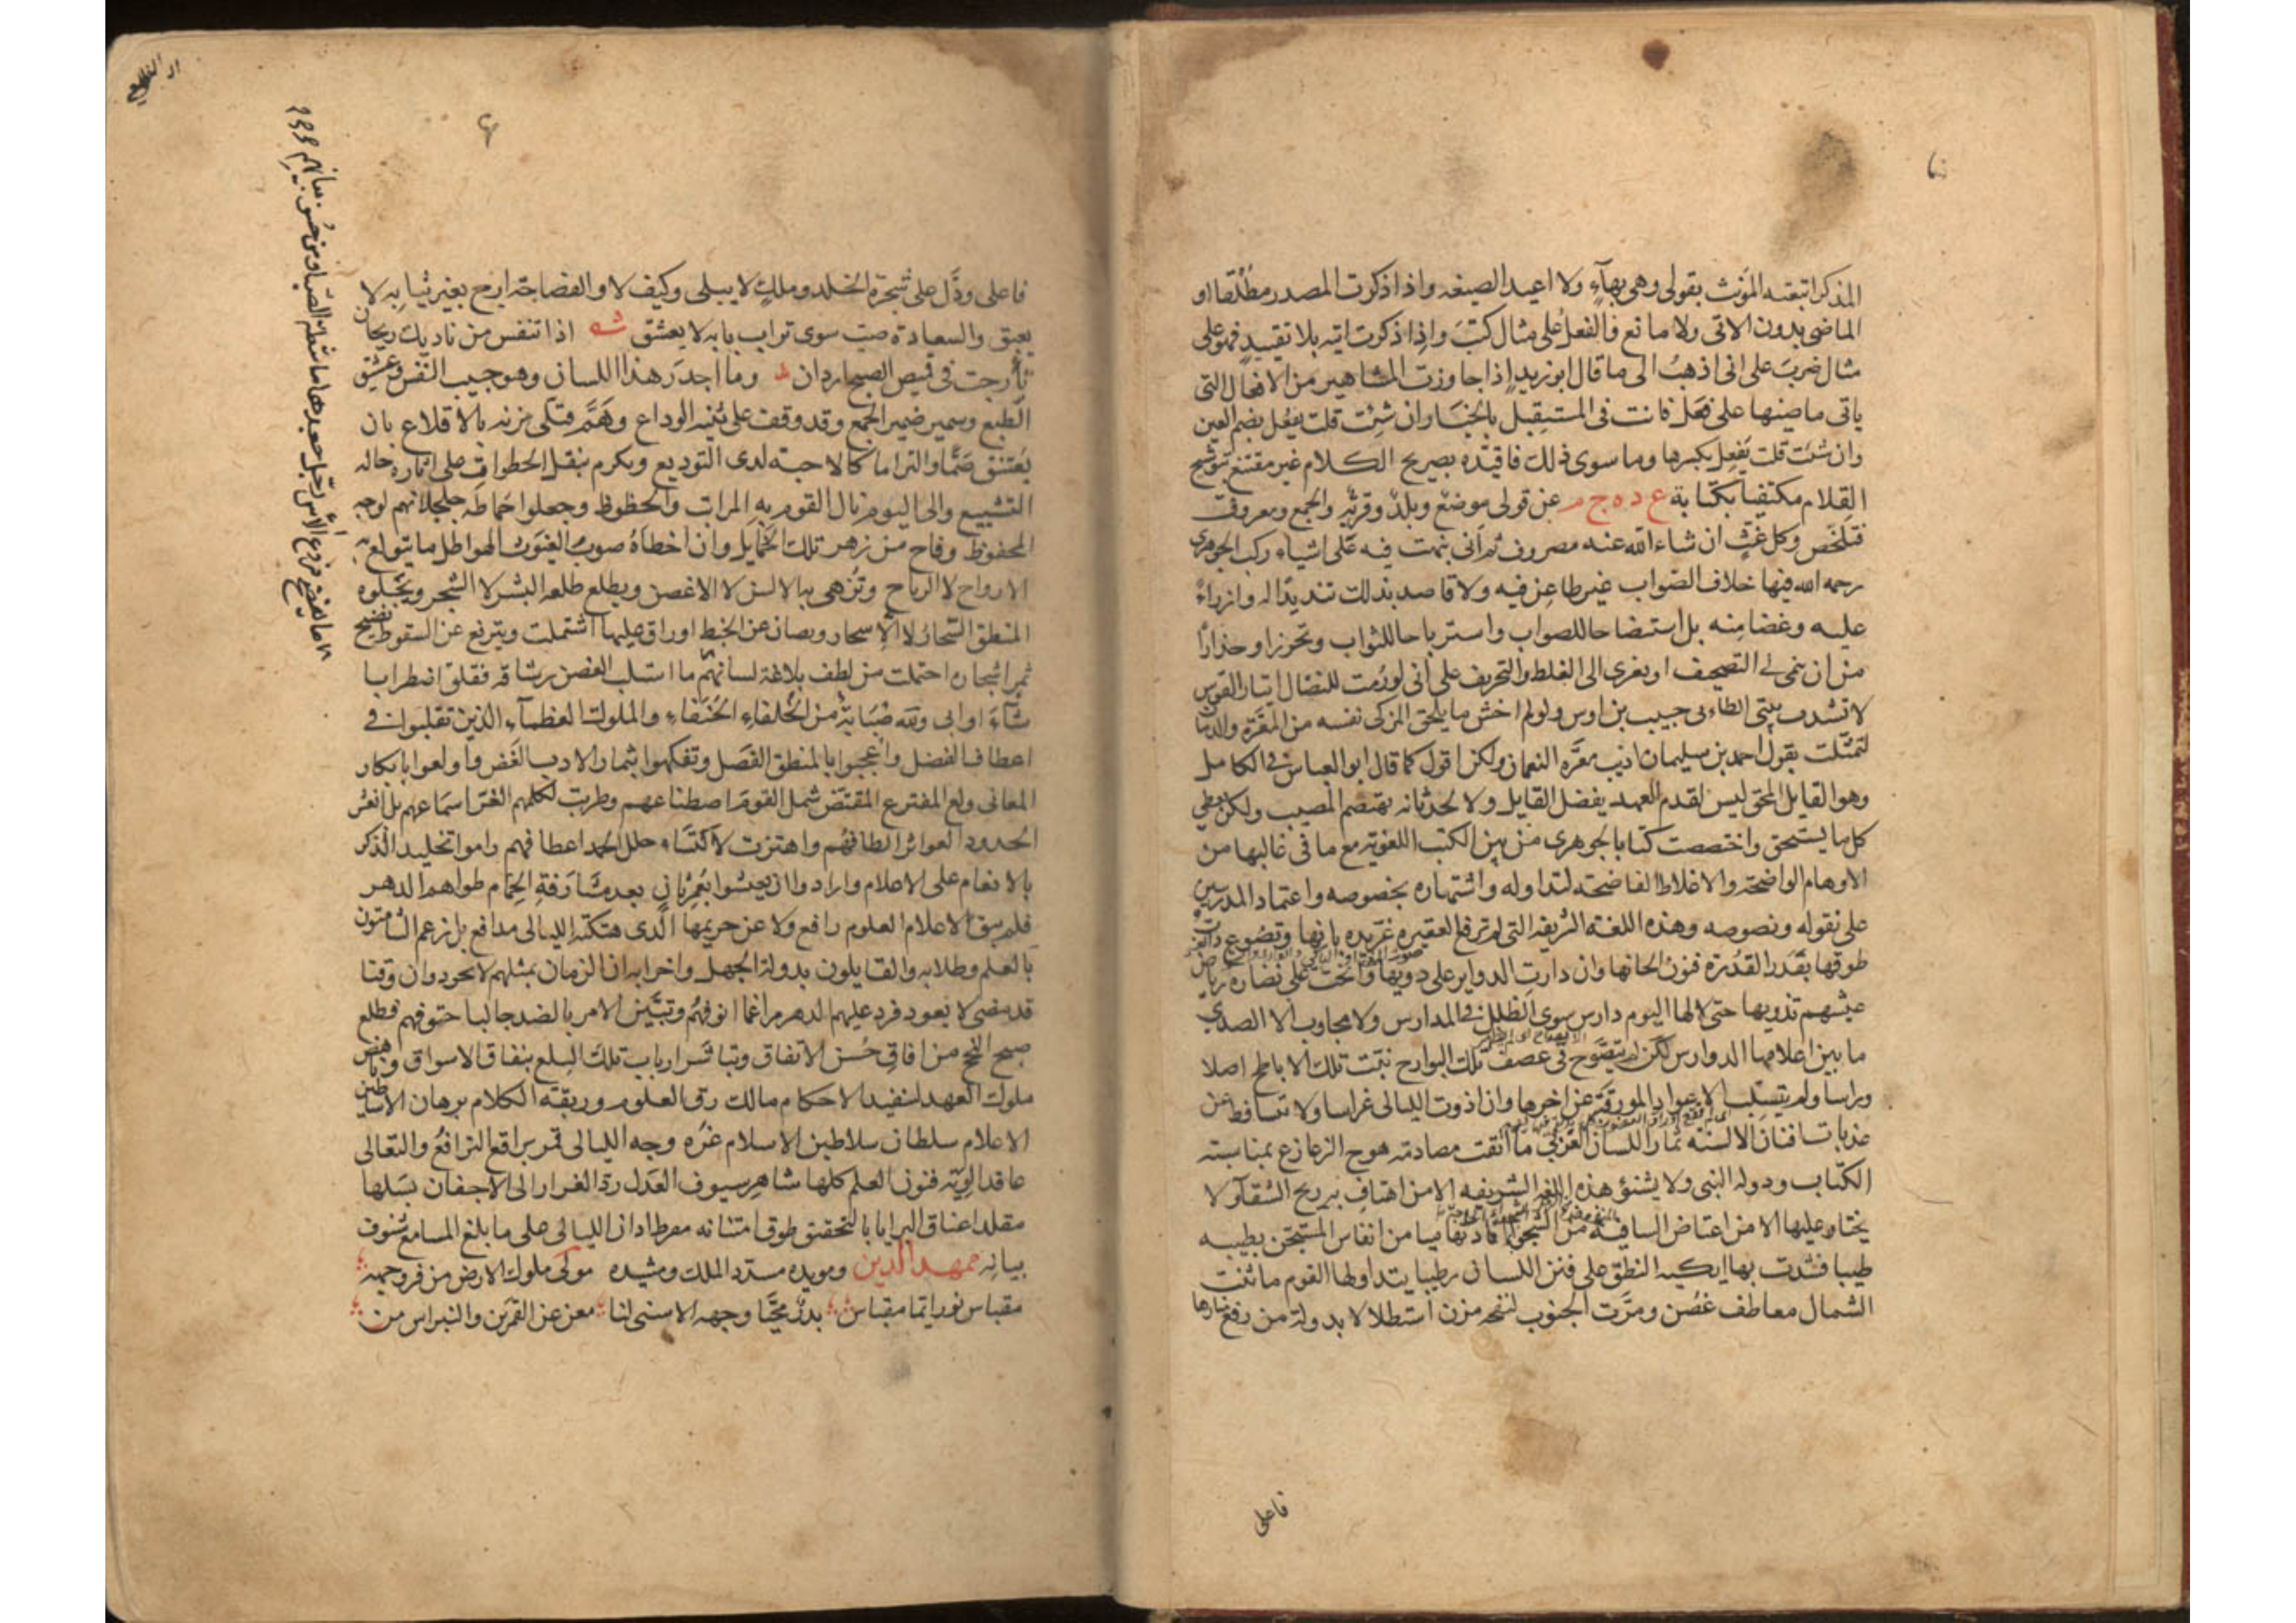 المذكر اتبعته المؤنث بقولى وهى بهآءٍ ولا اعيد الصيغه واذا ذكرت المصدر مطلقا او
الماضى بدون الاتى ولا مانع فالفعل على مثال كتبَ واذا ذكرت اتيه بلا تقييدٍ فهو على
مثال ضربَ على انى اذهبُ الى ما قال ابو زيدٍ اذا جاوزتَ المشاهير من الافعال التى
ياتى ماضيها على فعَل فانت فى المستقبِل بالخيَار ان شئت قلت يفعُل بضم العين
وان شئت قلت يَفعِل بكسرها وما سوى ذلك فاقيّده بصريح الكلام غير مقتنع بتوشيح
القلام مكتفيا بكتابة ع د ه ج م عن قولى موضع وبلدٌ وقريةٌ والجمع ومعروف
فتلخّص وكل غثٍّ ان شاء الله عنه مصروف ثم انى نبهت فيه على اشياء ركب الجوهرى
رحمه الله فيها خلاف الصّواب غير طاعِن فيه ولا قاصد بذلك تنديدًا له وازراءً
عليه وغضا مِنه بل استيضاحا للصواب واسترباحا للثواب وتحرزا وحذارًا
من ان ينمى الى التصحيف او يعزى الى الغلط والتحريف على انى لو رُمت للنضال ايتار القوس
لانشدت بيتى الطاءى حبيب بن اوس ولو لم اخش ما يلحق المزكى نفسه من المعَرّة والدمان
لتمثّلت بقول احمد بن سليمان اديب معَرّه النعمان ولكن اقول كما قال ابو العباس فى الكامل
وهو القايل المحق ليس لقدم العهد يفضل القايل ولا لحدثانه يهتضم المصيب ولكن يعطى
كل ما يستحق واختصصت كتاب الجوهرى من بين الكتب اللغويّه مع ما فى غالبها من
الاوهام الواضحة والاغلاط الفاضحة لتداوله واشتهاره بخصوصه واعتماد المدرسين
على نقوله ونصوصه وهذه اللغة الشريفه التى لم ترفع العقيره غرّيده بانها وتصُوع ذات
طوقها بقدر القُدرة فنون الحانها وان دارت الدواير على ذويها وانحت على نضاره رياض
عيشهم تذويها حتى لا لها اليوم دارس سوى الطلل فى المدارس ولا مجاوب الا الصدى
ما بين اعلامها الدوارس لكن لم يتصوّح فى عصف تلك البوارح نبتُ تلك الاباطح اصلا
وراسا ولم تستلب الاعواد المورقه عن اخرها وان اذوت الليالى غراسا ولا تتساقط عن
عذبات افنان الالسنه ثمار اللسان العَربى ما اتقت مصادمة هوج الزعازع بمناسبته
الكتاب ودوله النبى ولا يشنؤ هذه اللغه الشريفه الا من اهتاف به ريح الشقآء ولا
يختار عليها الا من اعتاض السافيه من الشجواء افادتها ميامن انفاس المستجن بطيبه
طيبا فشدت بها ايكيه النطق على فنن اللسان رطيبا يتداولها القوم ما ثنت
الشمال معاطف غصُن ومرَّت الجنوب لقحه مزن استظلالا بدولة من رفع منارها
فاعلى
فاعلى ودَّل على شجرة الخلد وملكٍ لا يبلى وكيف لا والفصاحة ارج بغير ثيابِه لا
يعبق والسعادة صبّ سوى تراب بابه لا يعشق شه اذا تنفس من ناديك ريحان
تأرجت فى قميص الصبح اردان وما اجدَر هذا اللسان وهو حبيب النفس وعشيق
الطبع وسمير ضمير الجمع وقد وقف على ثنيّه الوداع وهَمَّ قبلى مزنه بالاقلاع بان
يُعتنق ضمًّا والتراما كالاحبة لدى التوديع ويكرم بنقل الخطوات على اثاره حاله
التشييع والى اليوم نال القوم به المراتب والحظوظ وجعلوا حماطة جلجلانهم لوحه
المحفوظ وفاح من زهر تلك الخمايل وان اخطاهُ صوب الغيوث الهواطل ما يتولع به
الارواح لا الرياح وتزهى به الالسن لا الاغصن ويطلع طلعه البشر لا الشجر ويجلوه
المنطق السّحار لا الاسحار ويصان عن الخبط اوراق عليها اشتملت ويترفع عن السقوط نضيج
ثمر اشجاره احتملت من لطف بلاغة لسانهم ما استلب الغصن رشاقه فقلق اضطرابا
شآءَ او ابى ولله صُبابةٌ من الخلفاءِ الحُنفاءِ والملوك العظمآء الذين تقلبوا فى
اعطاف الفضل واعجبوا بالمنطق الفَصل وتفكهوا بثمار الادب الغَض واولعوا بابكار
المعانى ولع المفترع المقتضّ شمل القوم اصطناعهم وطربت لكلمهم الغُرّ اسماعهم بل انعش
الجدود العواثر الطافهم واهتزت لاكتساء حلل الحمد اعطافهم راموا تخليد الذكر
بالانعام على الاعلام وارادوا ان يعيشوا بعُمرٍ ثانٍ بعد مشارَفةِ الحِمَام طواهم الدهر
فلم يبق لاعلام العلوم رافع ولا عن حريمها الذى هتكته الليالى مدافع بل زعم الشامتون
بالعلم وطلابه والقايلون بدولة الجهل واحزابه ان الزمان بمثلهم لا يجود وان وقتا
قد مضى لا يعود فرد عليهم الدهر مراغما انوفهُم وتبيَّن الامر بالضد جالبا حتوفهم فطلع
صبح النجح من افاق حُسن الاتفاق وتباشر ارباب تلك السِلع بنفاق الاسواق وناهض
ملوك العهد لتنفيد الاحكام مالك رق العلوم وربقة الكلام برهان الاساطين
الاعلام سلطان سلاطين الاسلام غرُه وجه الليالى قمر براقع الترافُع والتعالى
عاقد الوِيَة فنون العلم كلها شاهر سيوف العَدل ردّ الغرار الى الاجفان بسَلها
مقلد اعناق البرايا بالتحقيق طوق امتنانه مقرط اذان الليالى على ما بلغ المسامع شنوف
بيانه ممهد الدين ومويده مسدّد الملك ومشيده مولى ملوك الارض من فى وجهه
مقباس نور ايّما مقباس بدرُ محيَّا وجهه الاسنى لنا مغن عن القمرَين والنبراس من